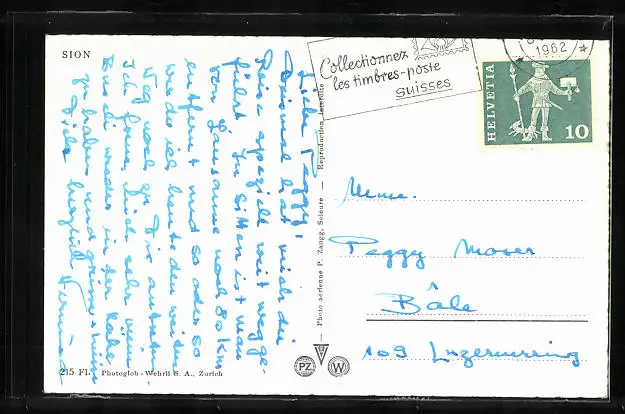 SION
Liebe Peggy!
Diesmal hat mich die
Reise speziell weit wegge-
führt. In Sitten ist man
von Lausanne noch 80 km
entfernt und so oder so
werde ich heute den weiten
Weg noch zu Dir antreten.
Ich freue mich sehr
Dich wieder in der Nähe
zu haben und grüsse
Viele herzlich
215 Fl. Photoglob-Wehrli S. A., Zurich
Photo aérienne P. Zaugg, Soleure — Reproduction interdite
PZ
W
Collectionnez
les timbres-poste
suisses
1962
HELVETIA
10
Mme.
Peggy Moser
Bâle
109 Luzernerring